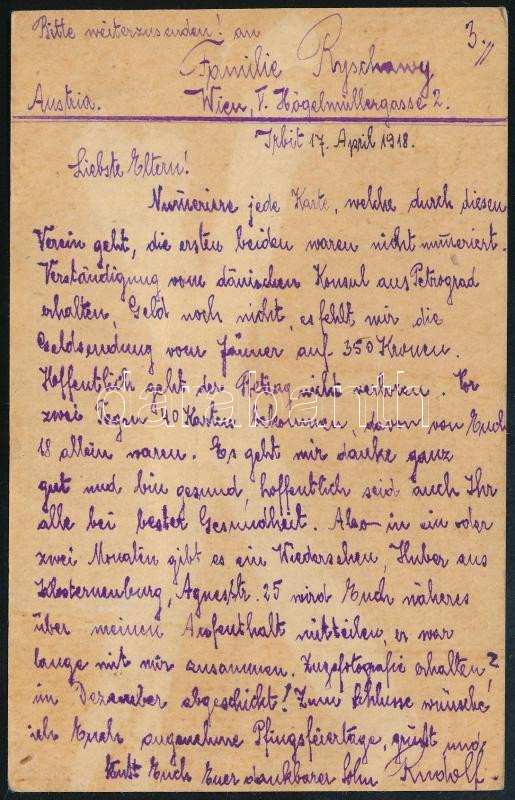 Bitte weiterzusenden! an
3.
Familie Ryschawy
Austria. Wien, V. Högelmüllergasse 2.
Irbit 17. April 1918.
Liebste Eltern!
Numeriere jede Karte, welche durch diesen
Verein geht, die ersten beiden waren nicht numeriert.
Verständigung vom dänischen Konsul aus Petrograd
erhalten, Geld noch nicht, es fehlt mir die
Geldsendung vom Jänner auf 350 Kronen.
Hoffentlich geht der Betrag nicht verloren. Vor
zwei Tagen 40 Karten bekommen, davon von Euch
18 allein waren. Es geht mir danke ganz
gut und bin gesund, hoffentlich seid auch Ihr
alle bei bester Gesundheit. Also in ein oder
zwei Monaten gibt es ein Wiedersehen, Huber aus
Klosterneuburg, Agnesstr. 25 wird Euch näheres
über meinen Aufenthalt mitteilen, er war
lange mit mir zusammen. Zugsfotografie erhalten?
im Dezember abgeschickt! Zum Schlusse wünsche
ich Euch angenehme Pfingsfeiertage, grüßt und
küßt Euch Euer dankbarer Sohn Rudolf.
darabanth